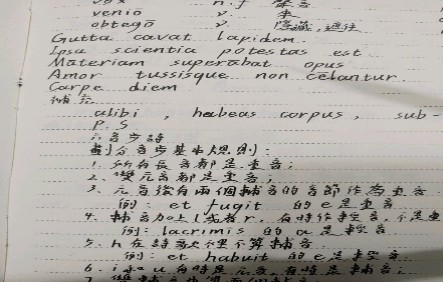 venio v. 来
obtego v. 隐藏,遮住
Gutta cavat lapidem.
Ipsa scientia potestas est
Materiam superabat opus
Amor tussisque non celantur.
Carpe diem
補充
alibi , habeas corpus , sub-
P. S
六音步詩
劃分音步基本規則:
1. 所有長音都是重音;
2. 雙元音都是重音;
3. 元音後有兩個輔音的音節作為重音
例: et fugit 的e是重音
4. 輔音加上l或者r,有時作輕音,不是重
例: lacrimis 的a是輕音
5. h在詩歌裡不算輔音
例: et habuit 的e是輕音
6. i和u有時是元音,有時是輔音;